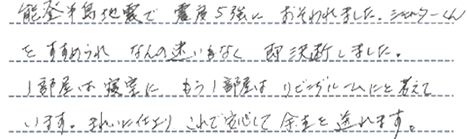 能登半島地震で 震度5強に おそわれました。シェルターくん
をすすめられ なんの迷いもなく 即決断しました。
1部屋は寝室に もう1部屋は リビングルームにと考えて
います。きれいに仕上り これで安心して 余生を送れます。